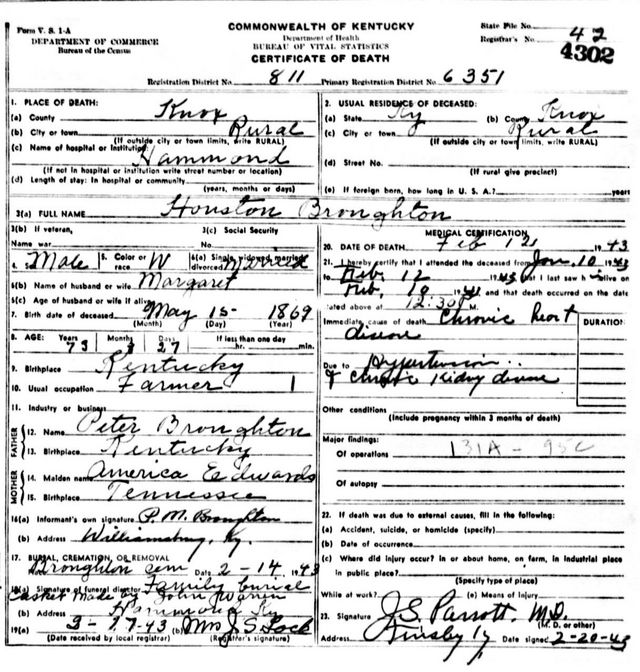 Form V. S. 1-A
DEPARTMENT OF COMMERCE
Bureau of the Census
COMMONWEALTH OF KENTUCKY
Department of Health
BUREAU OF VITAL STATISTICS
CERTIFICATE OF DEATH
State File No.
Registrar's No. 42
4302
Registration District No. 811 Primary Registration District No. 6351
1. PLACE OF DEATH:
(a) County Knox
(b) City or town Rural
(If outside city or town limits, write RURAL)
(c) Name of hospital or institution: Hammond
(If not in hospital or institution write street number or location)
(d) Length of stay: In hospital or community
(years, months or days)
2. USUAL RESIDENCE OF DECEASED:
(a) State Ky (b) County Knox
(c) City or town Rural
(If outside city or town limits, write RURAL)
(d) Street No.
(If rural give precinct)
(e) If foreign born, how long in U. S. A.? years
3(a) FULL NAME Houston Broughton
3(b) If veteran, 3(c) Social Security
Name war No.
4. Sex Male 5. Color or race W 6(a) Single, widowed, married, divorced Married
6(b) Name of husband or wife Margaret
6(c) Age of husband or wife if alive
7. Birth date of deceased May 15- 1869
(Month) (Day) (Year)
8. AGE: Years Months Days If less than one day
73 27 hr. min.
9. Birthplace Kentucky
10. Usual occupation Farmer
11. Industry or business
FATHER
12. Name Peter Broughton
13. Birthplace Kentucky
MOTHER
14. Maiden name America Edwards
15. Birthplace Tennessee
16(a) Informant's own signature P. M. Broughton
(b) Address Williamsburg, Ky.
17. BURIAL, CREMATION, OR REMOVAL
Broughton cem Date 2-14, 1943
18(a) Signature of funeral director Family burial
casket made by John
(b) Address Hammond Ky
19(a) (b) Mrs J. S. Lock
(Date received by local registrar) (Registrar's signature)
MEDICAL CERTIFICATION
20. DATE OF DEATH Feb 12, 1943
21. I hereby certify that I attended the deceased from Jan. 10 1943
to Feb. 12 1943 that I last saw h alive on
Feb. 10 and that death occurred on the date
stated above at 12:30 M.
Immediate cause of death Chronic Heart DURATION
disease
Due to Hypertension
& Chronic Kidney disease
Other conditions
(Include pregnancy within 3 months of death)
Major findings:
Of operations 131A - 95C
Of autopsy
22. If death was due to external causes, fill in the following:
(a) Accident, suicide, or homicide (specify)
(b) Date of occurrence
(c) Where did injury occur? In or about home, on farm, in industrial place
in public place?
(Specify type of place)
While at work? (e) Means of Injury
23. Signature J. S. Parrott, M.D.
(M. D. or other)
Address Date signed 2-20-43